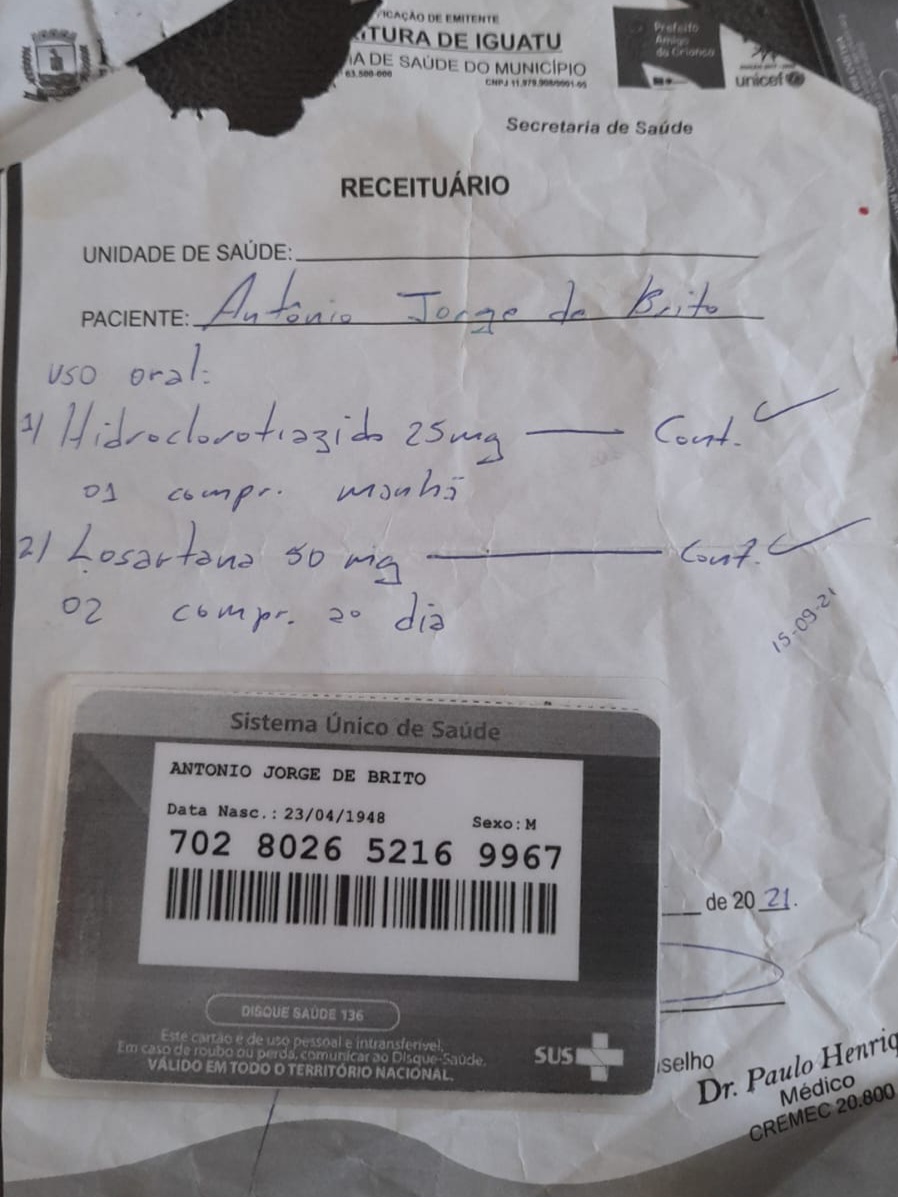 ICAÇÃO DE EMITENTE
ITURA DE IGUATU
IA DE SAÚDE DO MUNICÍPIO
63.500-000
CNPJ 11.979.908/0001-05
Prefeito
Amigo
da Criança
unicef
Secretaria de Saúde
RECEITUÁRIO
UNIDADE DE SAÚDE:
PACIENTE: Antônio Jorge de Brito
USO oral:
1) Hidroclorotiazida 25mg — Cont.
01 compr. manhã
2) Losartana 50 mg — Cont.
02 compr. ao dia
15-09-21
Sistema Único de Saúde
ANTONIO JORGE DE BRITO
Data Nasc.: 23/04/1948 Sexo: M
702 8026 5216 9967
DISQUE SAÚDE 136
Este cartão é de uso pessoal e intransferível.
Em caso de roubo ou perda, comunicar ao Disque-Saúde.
VÁLIDO EM TODO O TERRITÓRIO NACIONAL.
SUS
de 20 21.
selho
Dr. Paulo Henriq
Médico
CREMEC 20.800